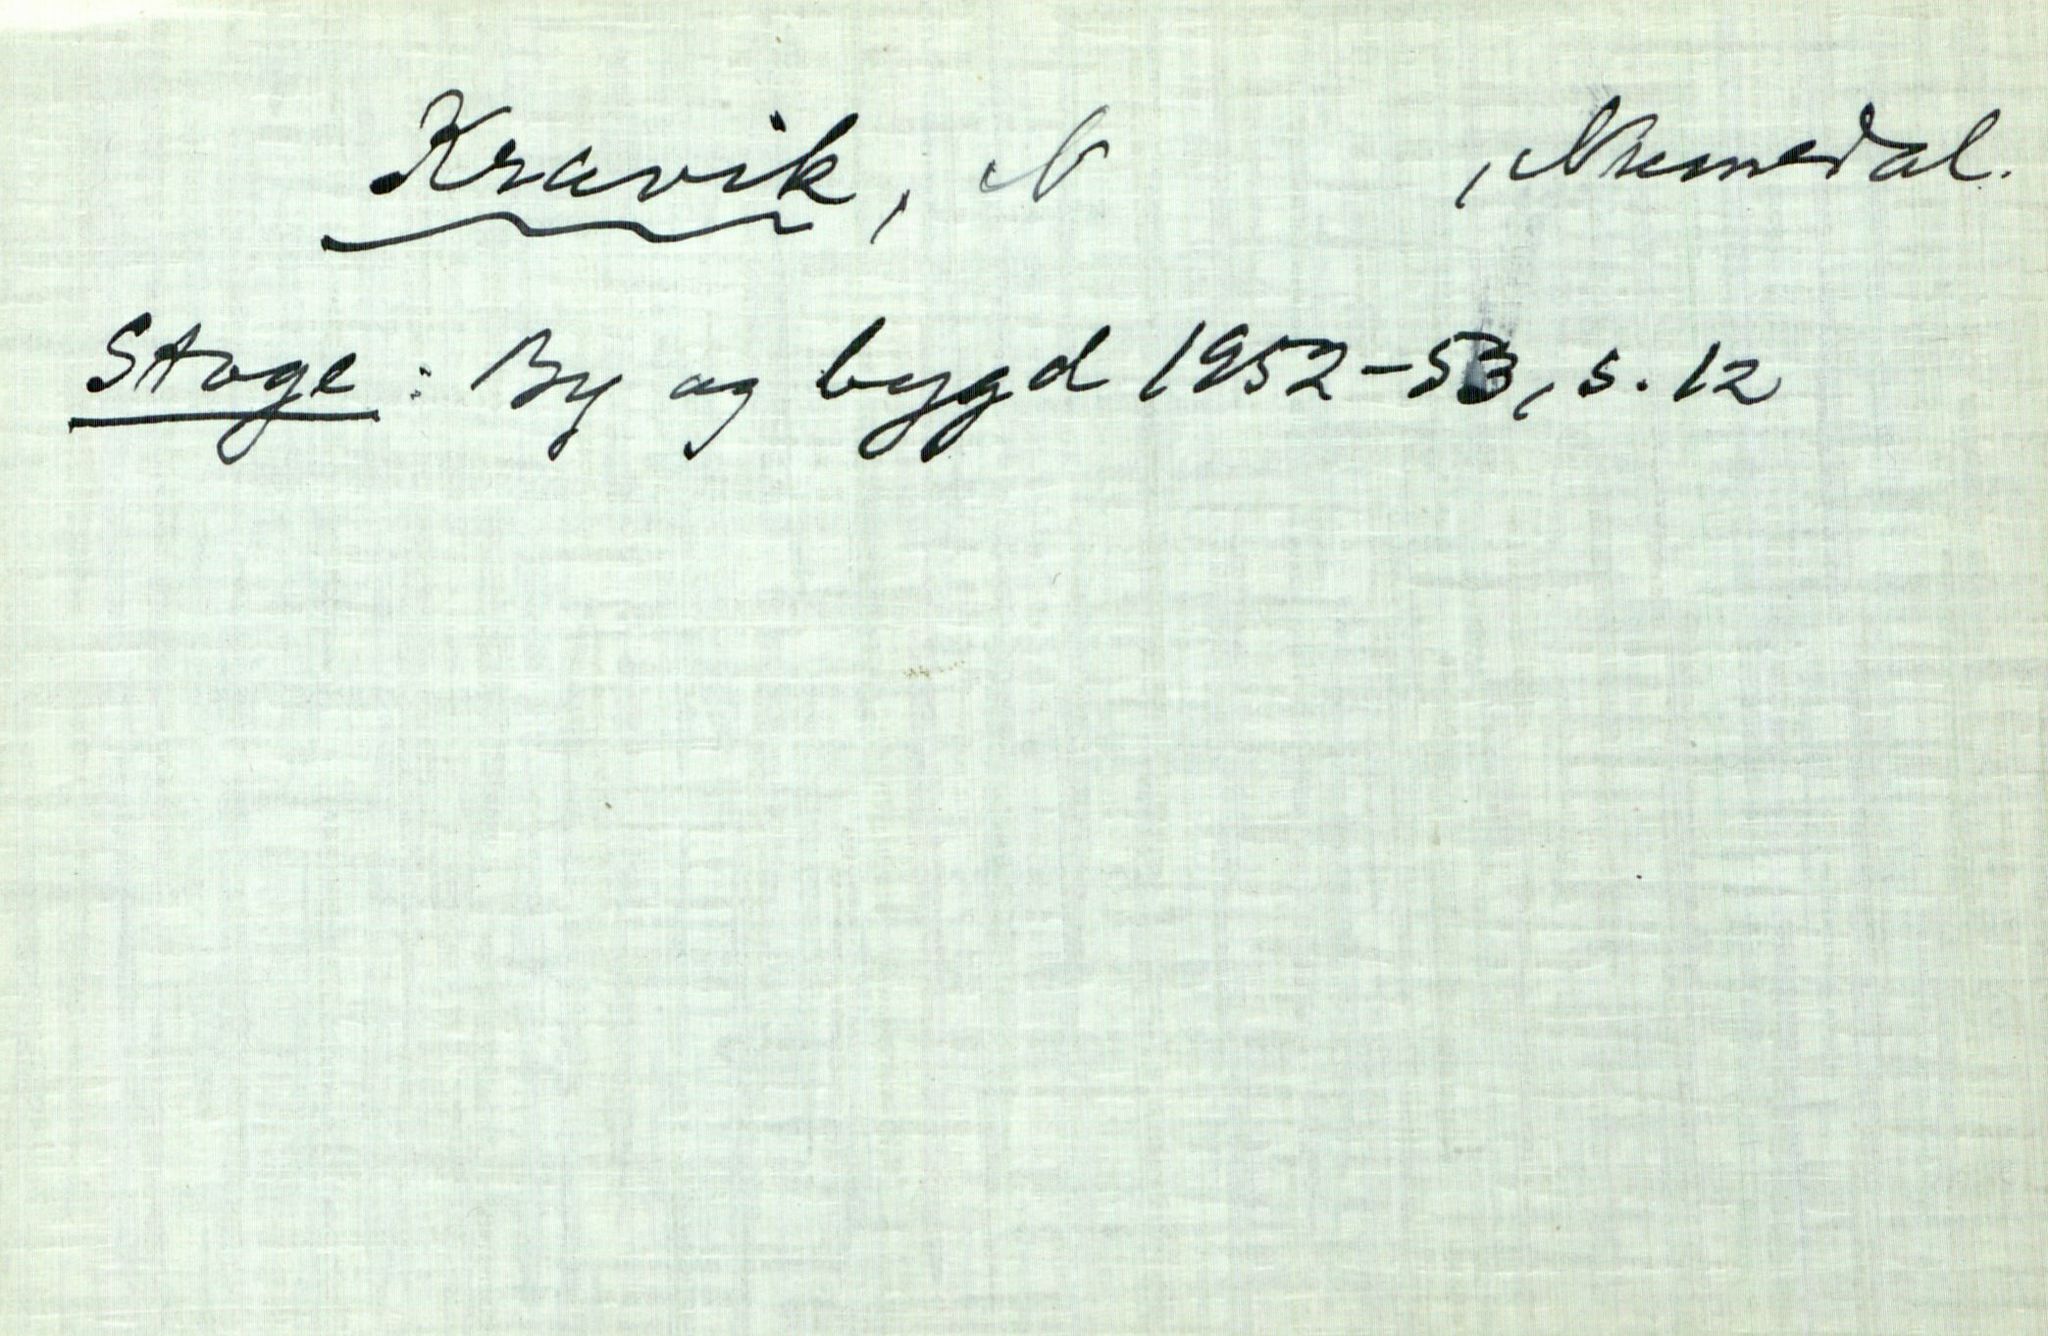 Kravik, N , Numedal.
Stoge: By og bygd 1952-53, s. 12